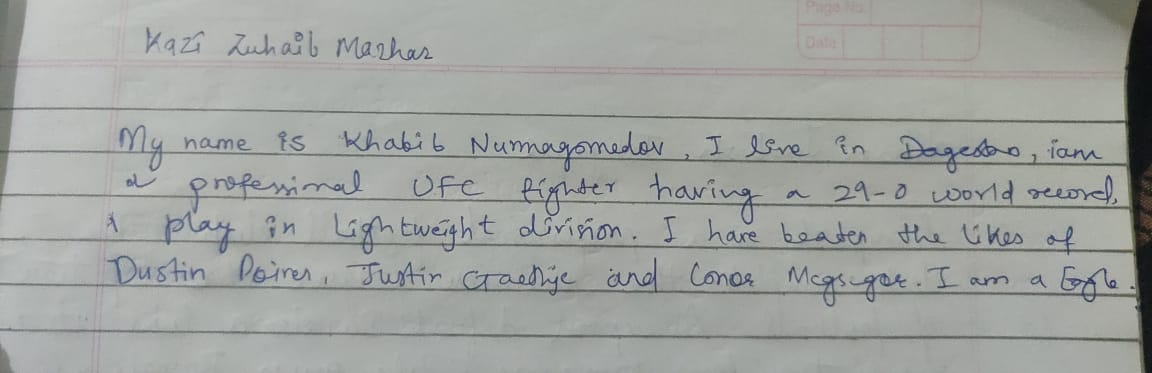 Page No.
Date
Kazi Zuhaib Mazhar
My name is Khabib Nurmagomedov, I live in Dagestan, iam
a professional UFC fighter having a 29-0 world record,
I play in Lightweight division. I have beaten the likes of
Dustin Poirer, Justin Gaethje and Conor Mcgregor. I am a Eagle.